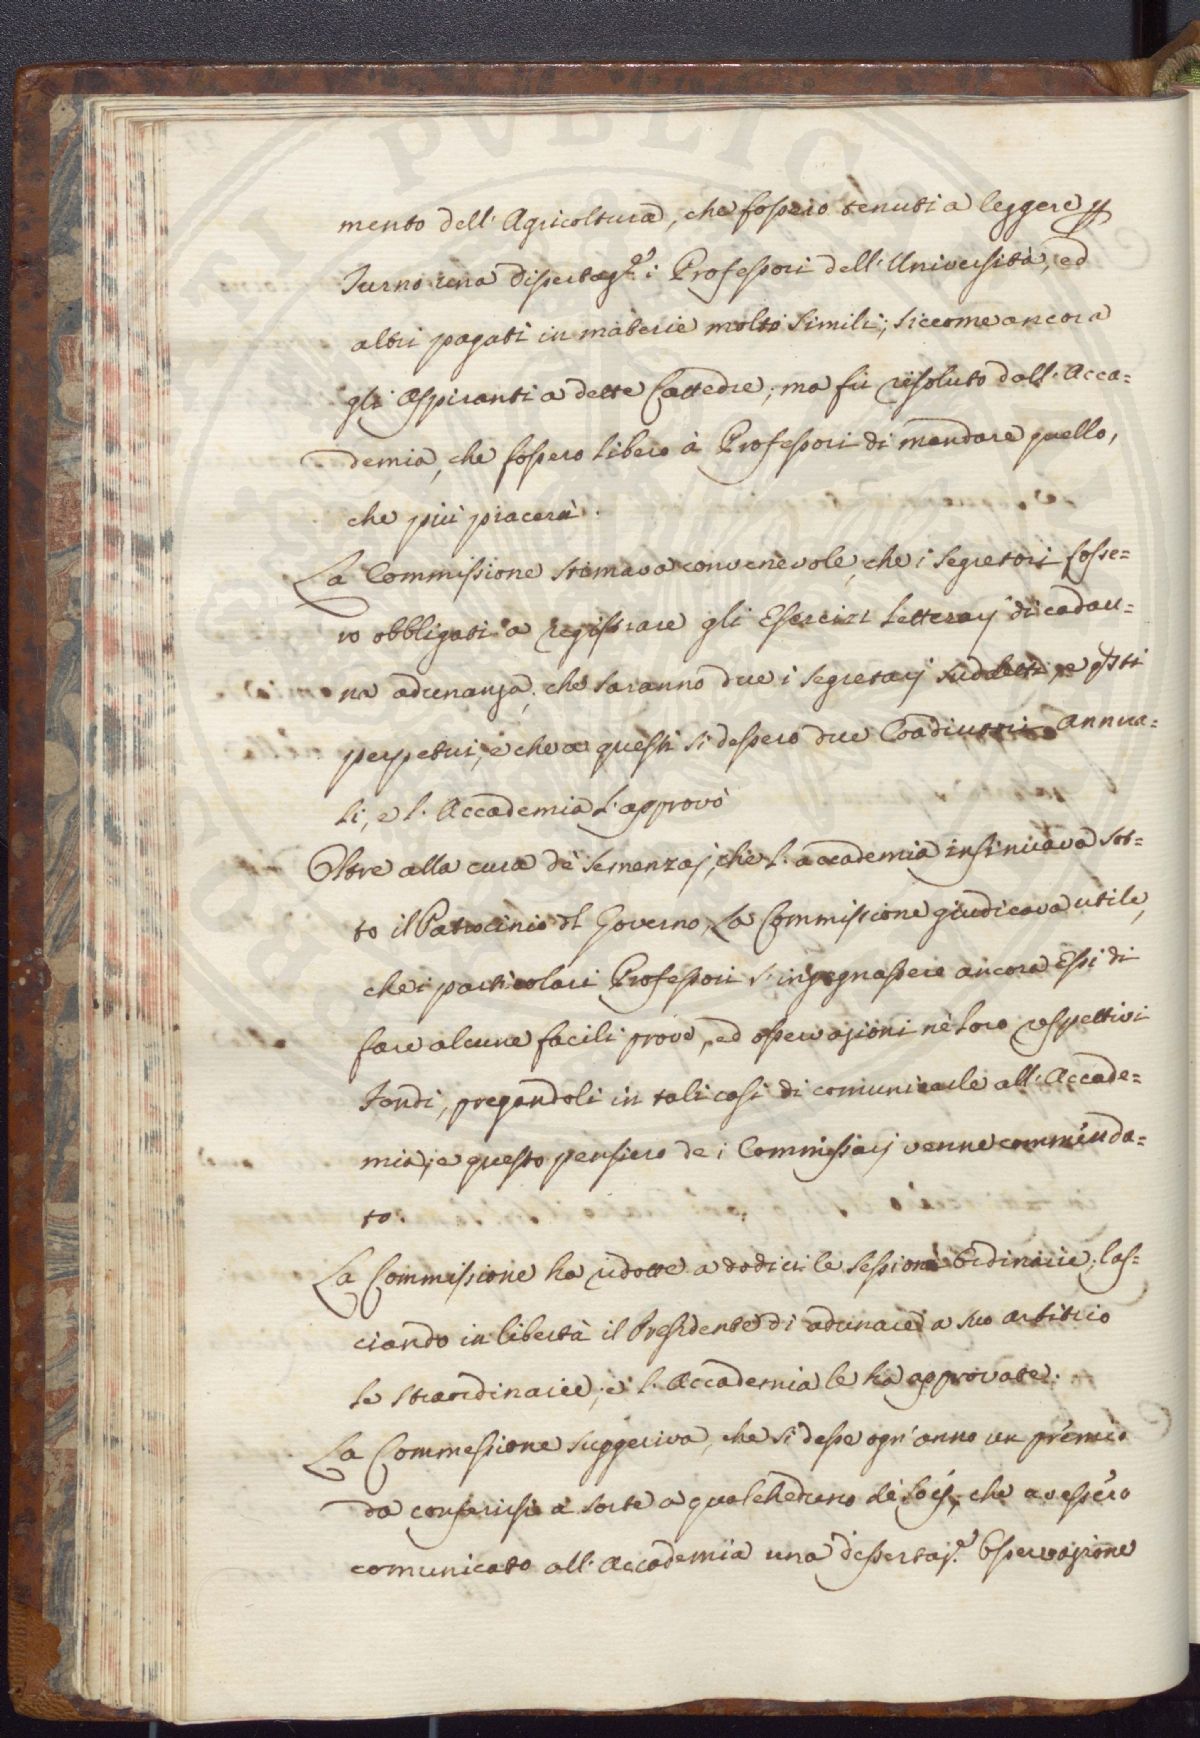 mento dell'Agricoltura, che fossero tenuti a leggere p
Turno una Dissertaz.e i Professori dell'Università, ed
altri pagati in materie molto simili; siccome ancora
gli Aspiranti a dette Cattedre; ma fù risoluto dall'Acca=
demia, che fossero libero à Professori di mandare quello,
che più piacerà.
La Commissione stimava convenevole, che i Segretori fosse=
ro obbligati a registrare gli Esercizi Letterarj di cadau=
na adunanza, che saranno due i Segretarj sudetti e qsti
perpetui, e che a questi si dessero due Coadiutori annua=
li, e l'Accademia l'approvò
Oltre alla cura de' Semenzaj, che l'accademia insinuava sot=
to il Patrocinio dl Governo, La Commissione giudicava utile,
che i particolari Professori s'ingegnassere ancora Essi di
fare alcune facili prove, ed osservazioni nè loro respettivi
Fondi, pregandoli in tali casi di comunicarle all'Accade=
mia; e questo pensiero de i Commissarj venne commenda=
to.
La Commissione ha ridotte a dodici le Sessioni Ordinarie, las=
ciando in libertà il Presidente di adunare a suo arbitrio
le straordinarie; e l'Accademia le ha approvate.
La Commessione suggeriva, che si desse ogn'anno un premio
da conferirsi a sorte a qualcheduno de' Socj, che avessero
comunicato all'Accademia una dissertaz.e Osservazione
PVBLICI